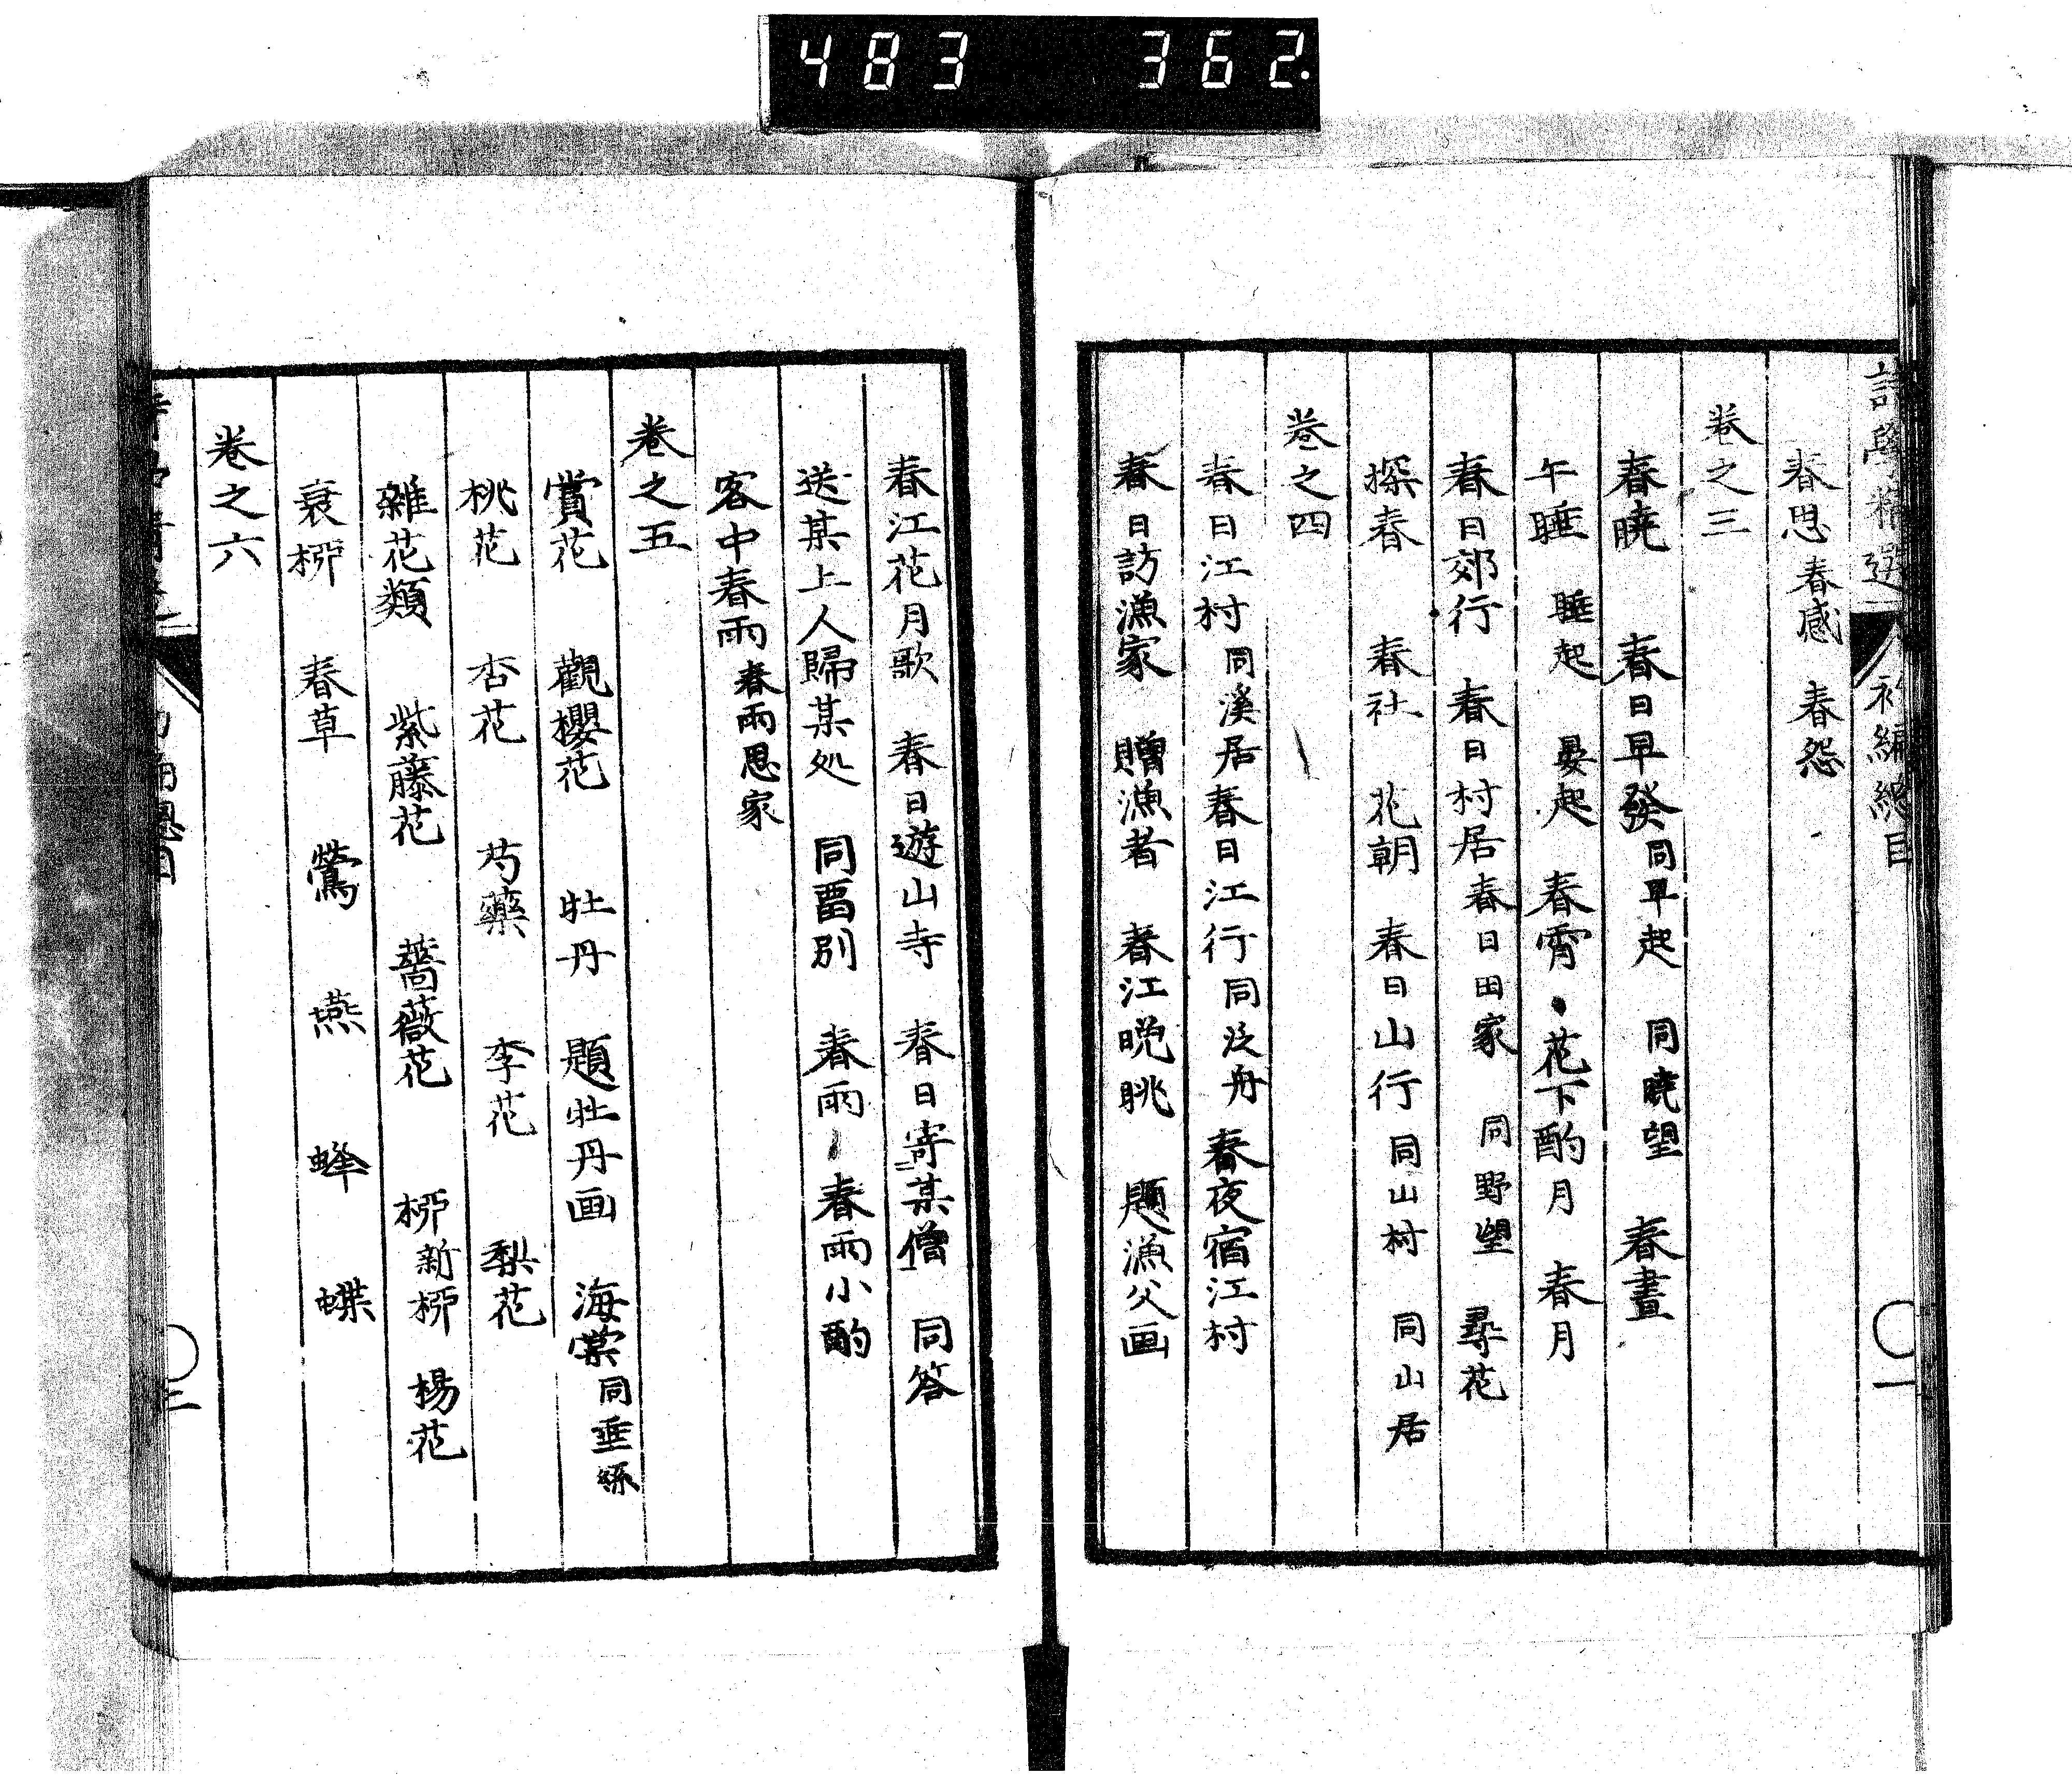 483 362.
詩學精選 初編總目 一
春思 春感 春怨
卷之三
春曉 春日早發 同早起 同曉望 春晝
午睡 睡起 晏起 春宵 花下酌月 春月
春日郊行 春日村居 春日田家 同野望 尋花
探春 春社 花朝 春日山行 同山村 同山居
卷之四
春日江村 同溪居 春日江行 同泛舟 春夜宿江村
春日訪漁家 贈漁者 春江晚眺 題漁父画
春江花月歌 春日遊山寺 春日寄某僧 同答
送某上人歸某処 同畱別 春雨 春雨小酌
客中春雨 春雨思家
卷之五
賞花 觀櫻花 牡丹 題牡丹画 海棠 同垂絲
桃花 杏花 芍藥 李花 梨花
雜花類 紫藤花 薔薇花 柳 新柳 楊花
衰柳 春草 鶯 燕 蜂 蝶
卷之六